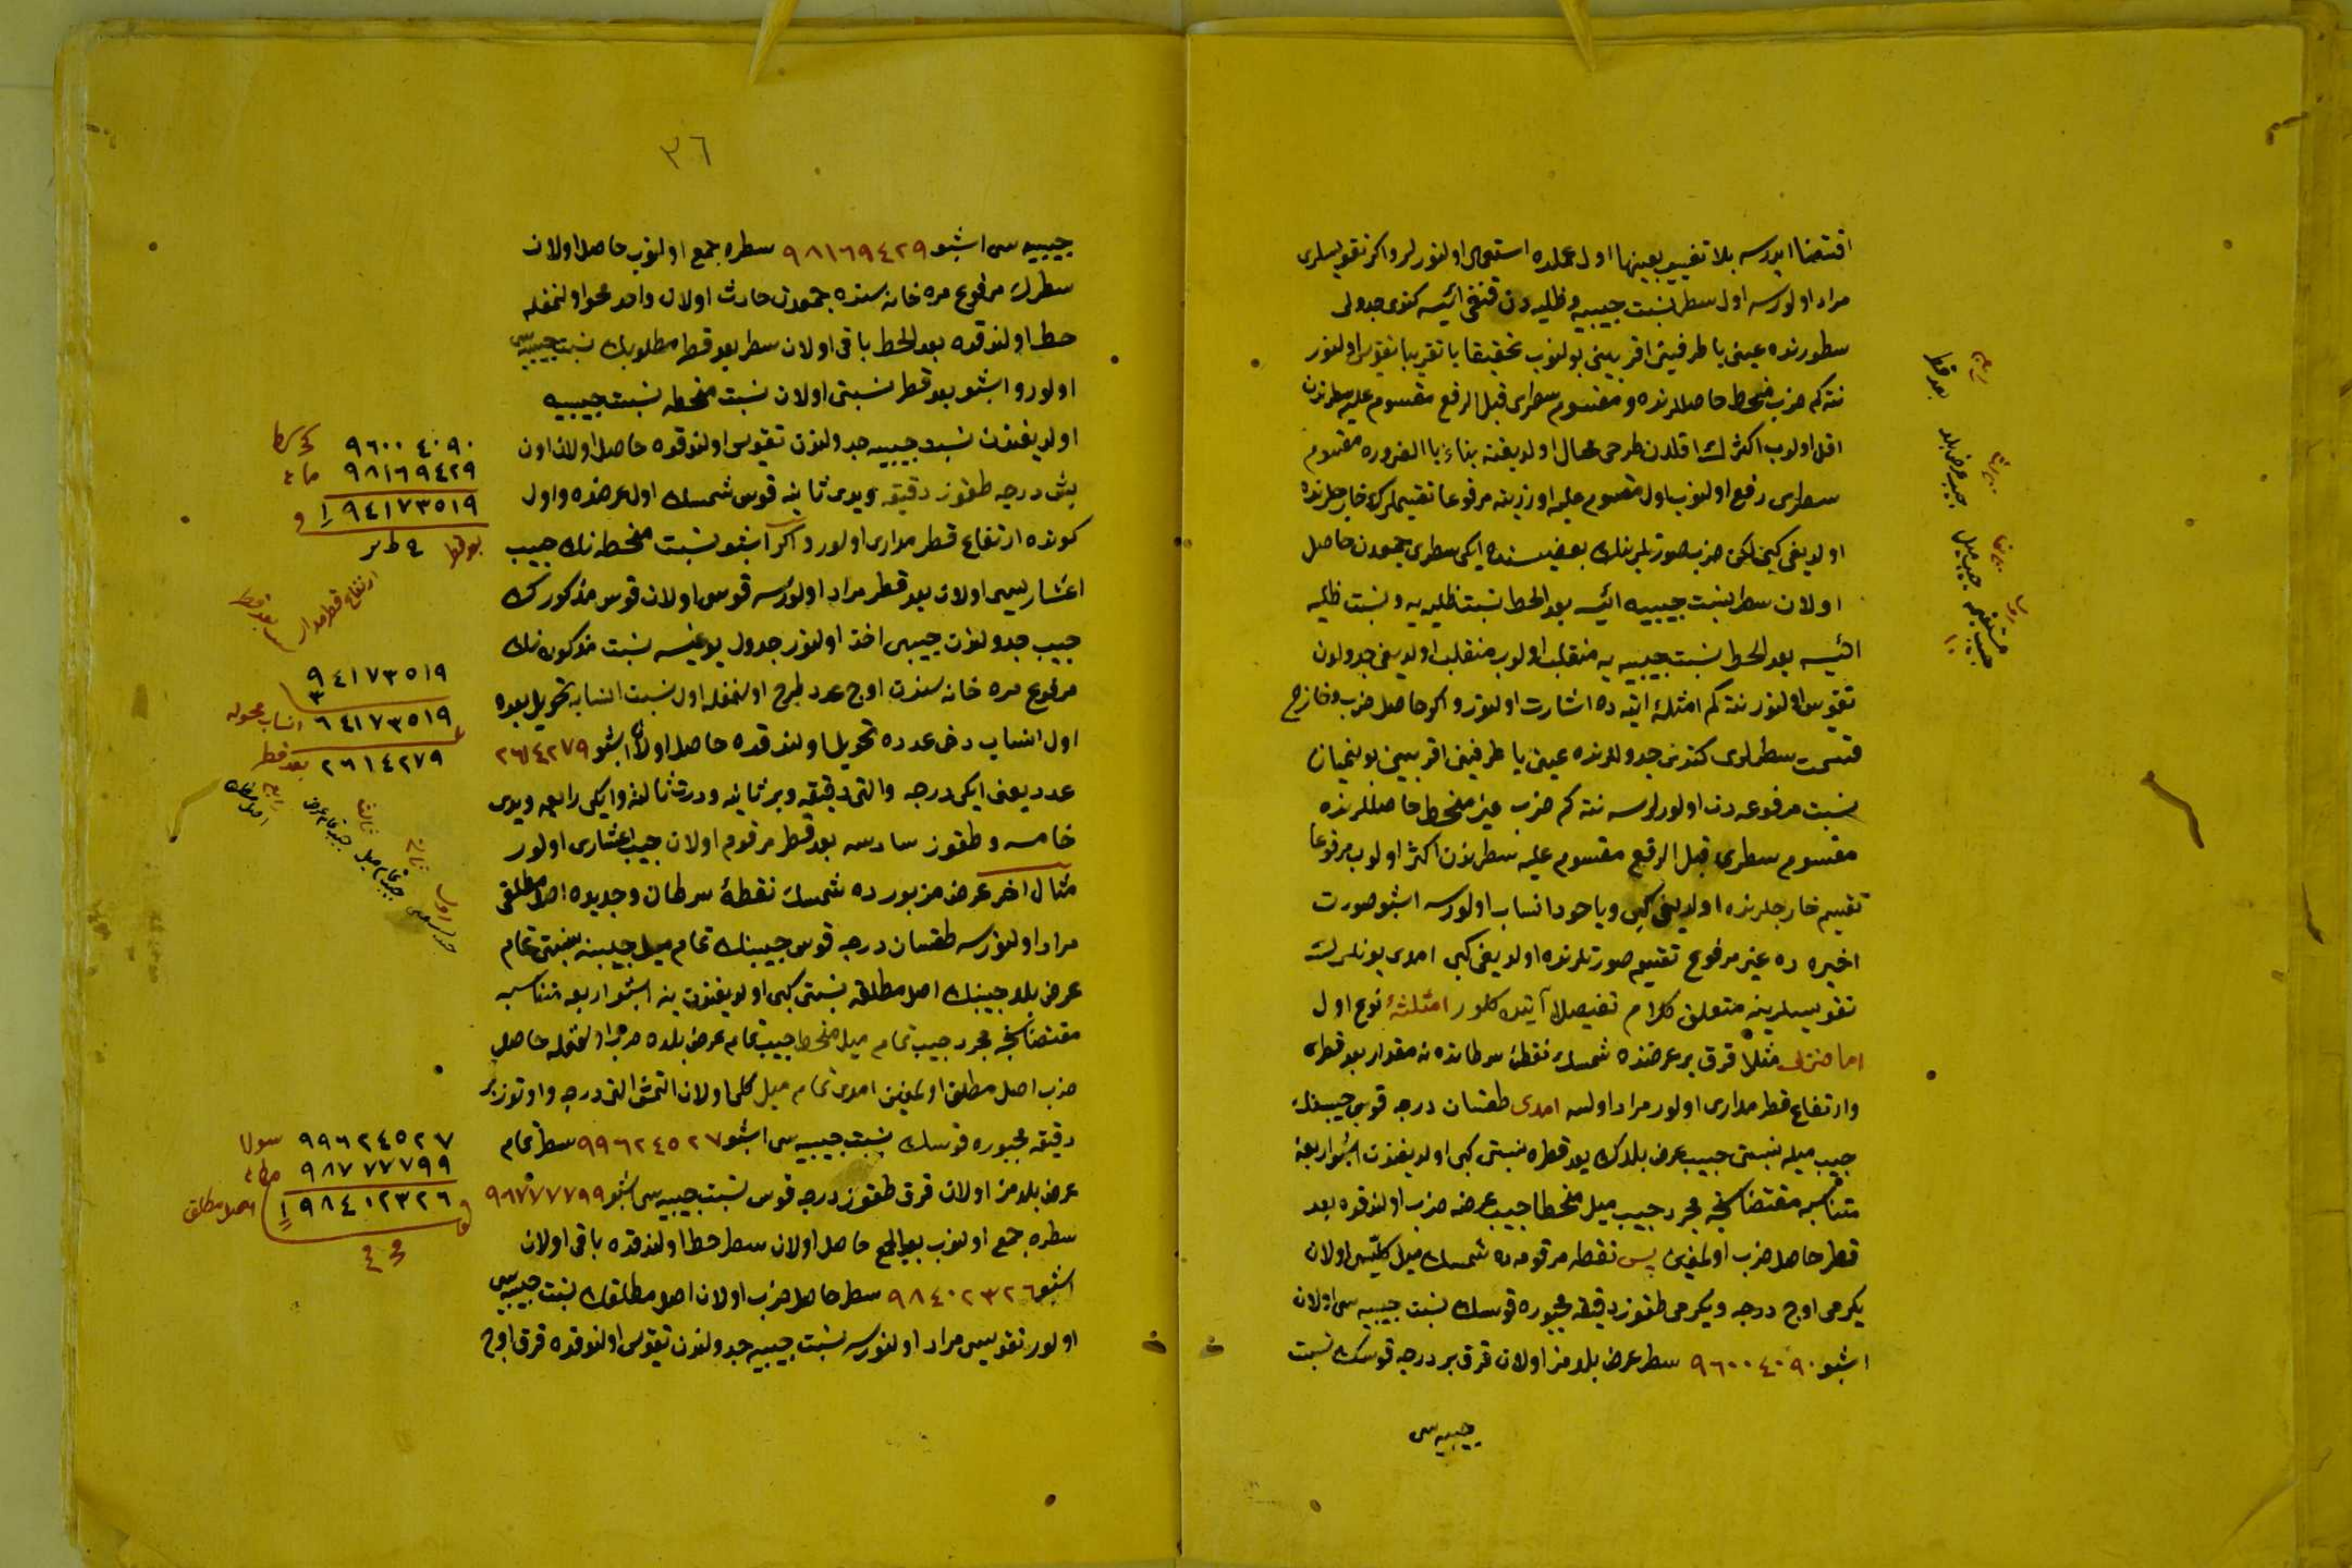 اقتضا ايدرسه بلا تغيير بعينها اول عملده استعمال اولنورلر و اكر تقويسلرى
مراد اولورسه اول سطر نسبت جيبيه و ظليه دن قنغى ائيسه كندى جدولى
سطورنده عينى يا طرفينى اقربينى بولنوب تحقيقا يا تقريبا تقويس اولنور
نته كم ضرب منحط حاصللرنده و مقسوم سطرى قبل الرفع مقسوم عليه سطرندن
اقل اولوب اكثرك اقلدن طرحى محال اولديغنه بناء بالضروره مقسوم
سطرى رفع اولنوب اول مقسوم عليه اوزرينه مرفوعا تقسيملرك خارجلرنده
اولديغى كبى لكن ضرب صورتلرينك بعضيسنده ايكى سطرى جمعدن حاصل
اولان سطر نسبت جيبيه ائيسه بعد الحط نسبت ظليه يه و نسبت ظليه
ائيسه بعد الحط نسبت جيبيه يه منقلب اولوب منقلب اولديغى جدولدن
تقويس اولنور نته كم امثلۀ آتيه ده اشارت اولنور و اكر حاصل ضرب و خارج
قسمت سطرلرى كندى جدوللرنده عينى يا طرفينى اقربينى بولنميان
نسبت مرفوعه دن اولورلرسه نته كم ضرب غير منحط حاصللرنده
مقسوم سطرى قبل الرفع مقسوم عليه سطرندن اكثر اولوب مرفوعا
تقسيم خارجلرنده اولديغى كبى و ياخود انساب اولورسه اشبو صورت
اخيره ده غير مرفوع تقسيم صورتلرنده اولديغى كبى امدى بونلرك
تقويسلرينه متعلق كلام تفصيلا آتيده كلور امثلۀ نوع اول
اما ضرب مثلا قرق بر عرضنده شمسك نقطۀ سرطانده نه مقدار بعد قطرى
و ارتفاع قطر مدارى اولور مراد اولسه امدى طقسان درجه قوس جيبنك
جيب ميله نسبتى جيب عرض بلدك بعد قطره نسبتى كبى اولديغندن اشبو اربعۀ
متناسبه مقتضاسنجه مجرد جيب ميل منحطا جيب عرضه ضرب اولندقده بعد
قطر حاصل ضرب اولمغين پس نقطه مرقومه ده شمسك ميل كليسى اولان
يكرمى اوچ درجه و يكرمى طقوز دقيقه مجبوره قوسك نسبت جيبيه سى اولان
اشبو ٩٦٠٠٤٠٩٠ سطر عرض بلدمز اولان قرق بر درجه قوسك نسبت
جيبيه سى
رابع
بعد قطر
ثالث
جيب عرض بلد
ثانى
جيب ميل
اول
٣٦
جيبيه سى اشبو ٩٨١٦٩٤٢٩ سطره جمع اولنوب حاصل اولان
سطرك مرفوع مره خانه سنده جمعدن حادث اولان واحد محو اولنمغله
حط اولندقده بعد الحط باقى اولان سطر بعد قطر مطلوبك نسبت جيبيه سى
اولور و اشبو بعد قطر نسبتى اولان نسبت منحطه نسبت جيبيه
اولديغندن نسبت جيبيه جدولندن تقويس اولندقده حاصل اولان اون
بش درجه طقوز دقيقه و يدى ثانيه قوس شمسك اول عرضده و اول
كونده ارتفاع قطر مدارى اولور و اكر اشبو نسبت منحطه نك جيب
اعشاريسى اولان بعد قطر مراد اولنورسه قوسى اولان قوس مذكورك
جيب جدولندن جيبى اخذ اولنور جدول يوغيسه نسبت مذكوره نك
مرفوع مره خانه سندن اوچ عدد طرح اولنمغله اول نسبت انسابه تحويل بعده
اول انساب دخى عدده تحويل اولندقده حاصل اولان اشبو ٢٦١٤٢٧٩
عدد يعنى ايكى درجه و التى دقيقه و بر ثانيه و درت ثالثه و ايكى رابعه و يدى
خامسه و طقوز سادسه بعد قطر مرقوم اولان جيب اعشارى اولور
مثال اخر عرض مزبورده شمسك نقطۀ سرطان و جديده اصل مطلقى
مراد اولنورسه طقسان درجه قوس جيبنك تمام ميل جيبنه نسبتى تمام
عرض بلد جيبنك اصل مطلقه نسبتى كبى اولديغندن ينه اشبو اربعه متناسبه
مقتضاسنجه مجرد جيب تمام ميل منحطا جيب تمام عرض بلده ضرب اولنمغله حاصل
ضرب اصل مطلق اولمغين امدى تمام ميل كلى اولان التمش التى درجه و اوتوز بر
دقيقه مجبوره قوسك نسبت جيبيه سى اشبو ٩٩٦٢٤٥٢٧ سطر تمام
عرض بلدمز اولان قرق طقوز درجه قوس نسبت جيبيه سى اشبو ٩٨٧٧٧٧٩٩
سطره جمع اولنوب بعد الجمع حاصل اولان سطر حط اولندقده باقى اولان
اشبو ٩٨٤٠٢٣٢٦ سطر حاصل ضرب اولان اصل مطلقك نسبت جيبيه سى
اولور تقويسى مراد اولنورسه نسبت جيبيه جدولندن تقويس اولندقده قرق اوچ
٩٦٠٠٤٠٩٠
٩٨١٦٩٤٢٩
١٩٤١٧٣٥١٩
بعد قطر
ارتفاع قطر مدار
٩٤١٧٣٥١٩
٣
٦٤١٧٣٥١٩ انساب محوله
٢٦١٤٢٧٩ بعد قطر
رابع
اصل مطلق
ثالث
جيب تمام عرض
ثانى
جيب تمام ميل
اول
٩٩٦٢٤٥٢٧
٩٨٧٧٧٧٩٩
١٩٨٤٠٢٣٢٦ اصل مطلق